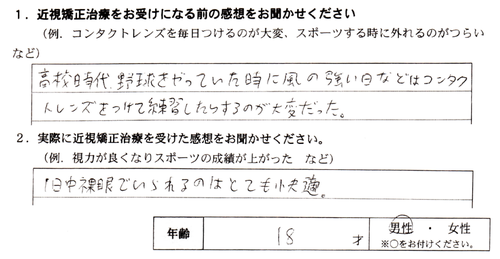 1．近視矯正治療をお受けになる前の感想をお聞かせください
（例．コンタクトレンズを毎日つけるのが大変、スポーツする時に外れるのがつらい
など）
高校時代、野球をやっていた時に風の強い日などはコンタク
トレンズをつけて練習したりするのが大変だった。
2．実際に近視矯正治療を受けた感想をお聞かせください。
（例．視力が良くなりスポーツの成績が上がった　など）
1日中裸眼でいられるのはとても快適。
年齢　18　才　男性　・　女性
※○をお付けください。